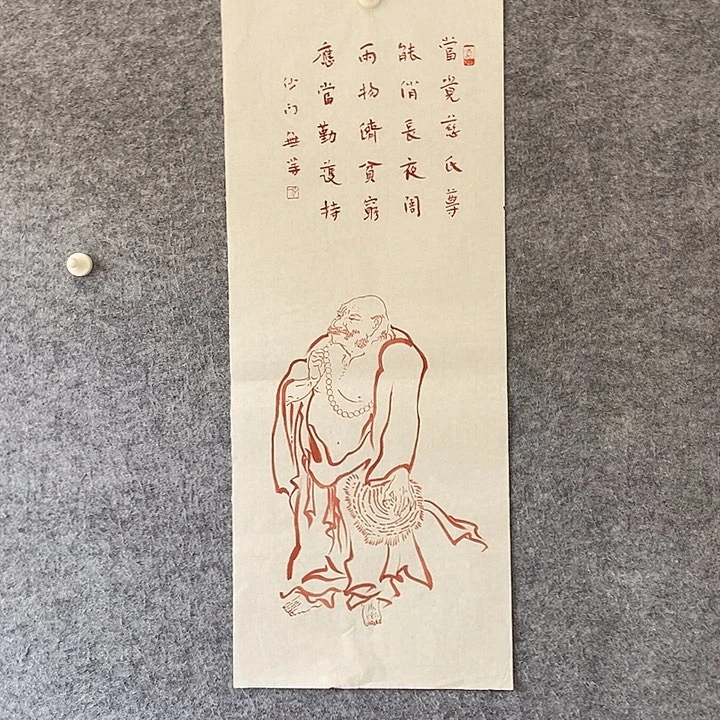 當覓慈氏尊
能消長夜闇
雨物濟貧窮
應當勤護持
沙門無等